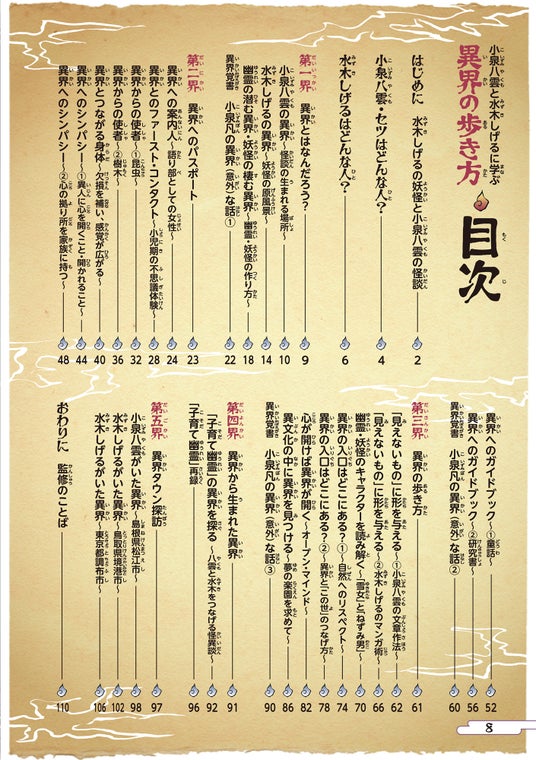 小泉八雲と水木しげるに学ぶ
異界の歩き方
目次
はじめに 水木しげるの妖怪と小泉八雲の怪談 2
小泉八雲・セツはどんな人? 4
水木しげるはどんな人? 6
第一界 異界とはなんだろう? 9
小泉八雲の異界〜怪談の生まれる場所〜 10
水木しげるの異界〜妖怪の原風景〜 14
幽霊の潜む異界・妖怪の棲む異界〜幽霊・妖怪の作り方〜 18
異界覚書 小泉凡の異界(意外)な話① 22
第二界 異界へのパスポート 23
異界への案内人〜語り部としての女性〜 24
異界とのファースト・コンタクト〜小児期の不思議体験〜 28
異界からの使者〜①昆虫〜 32
異界からの使者〜②樹木〜 36
異界とつながる身体〜欠損を補い、感覚が広がる〜 40
異界へのシンパシー〜①異人に心を開くこと・開かれること〜 44
異界へのシンパシー〜②心の拠り所を家族に持つ〜 48
異界へのガイドブック〜①童話〜 52
異界へのガイドブック〜②研究書〜 56
異界覚書 小泉凡の異界(意外)な話② 60
第三界 異界の歩き方 61
「見えないもの」に形を与える〜①小泉八雲の文章作法〜 62
「見えないもの」に形を与える〜②水木しげるのマンガ術〜 66
幽霊・妖怪のキャラクターを読み解く〜「雪女」と「ねずみ男」〜 70
異界の入口はどこにある?①〜自然へのリスペクト〜 74
異界の入口はどこにある?②〜異界と「この世」のつなげ方〜 78
心が開けば異界が開く〜オープン・マインド〜 82
異文化の中に異界を見つける〜夢の楽園を求めて〜 86
異界覚書 小泉凡の異界(意外)な話③ 90
第四界 異界から生まれた異界 91
「子育て幽霊」の異界を探る〜八雲と水木をつなげる怪異談〜 92
「子育て幽霊」再録 96
第五界 異界タウン探訪 97
小泉八雲がいた異界〜島根県松江市〜 98
水木しげるがいた異界〜鳥取県境港市〜 102
水木しげるがいた異界〜東京都調布市〜 106
おわりに 監修のことば 110
8